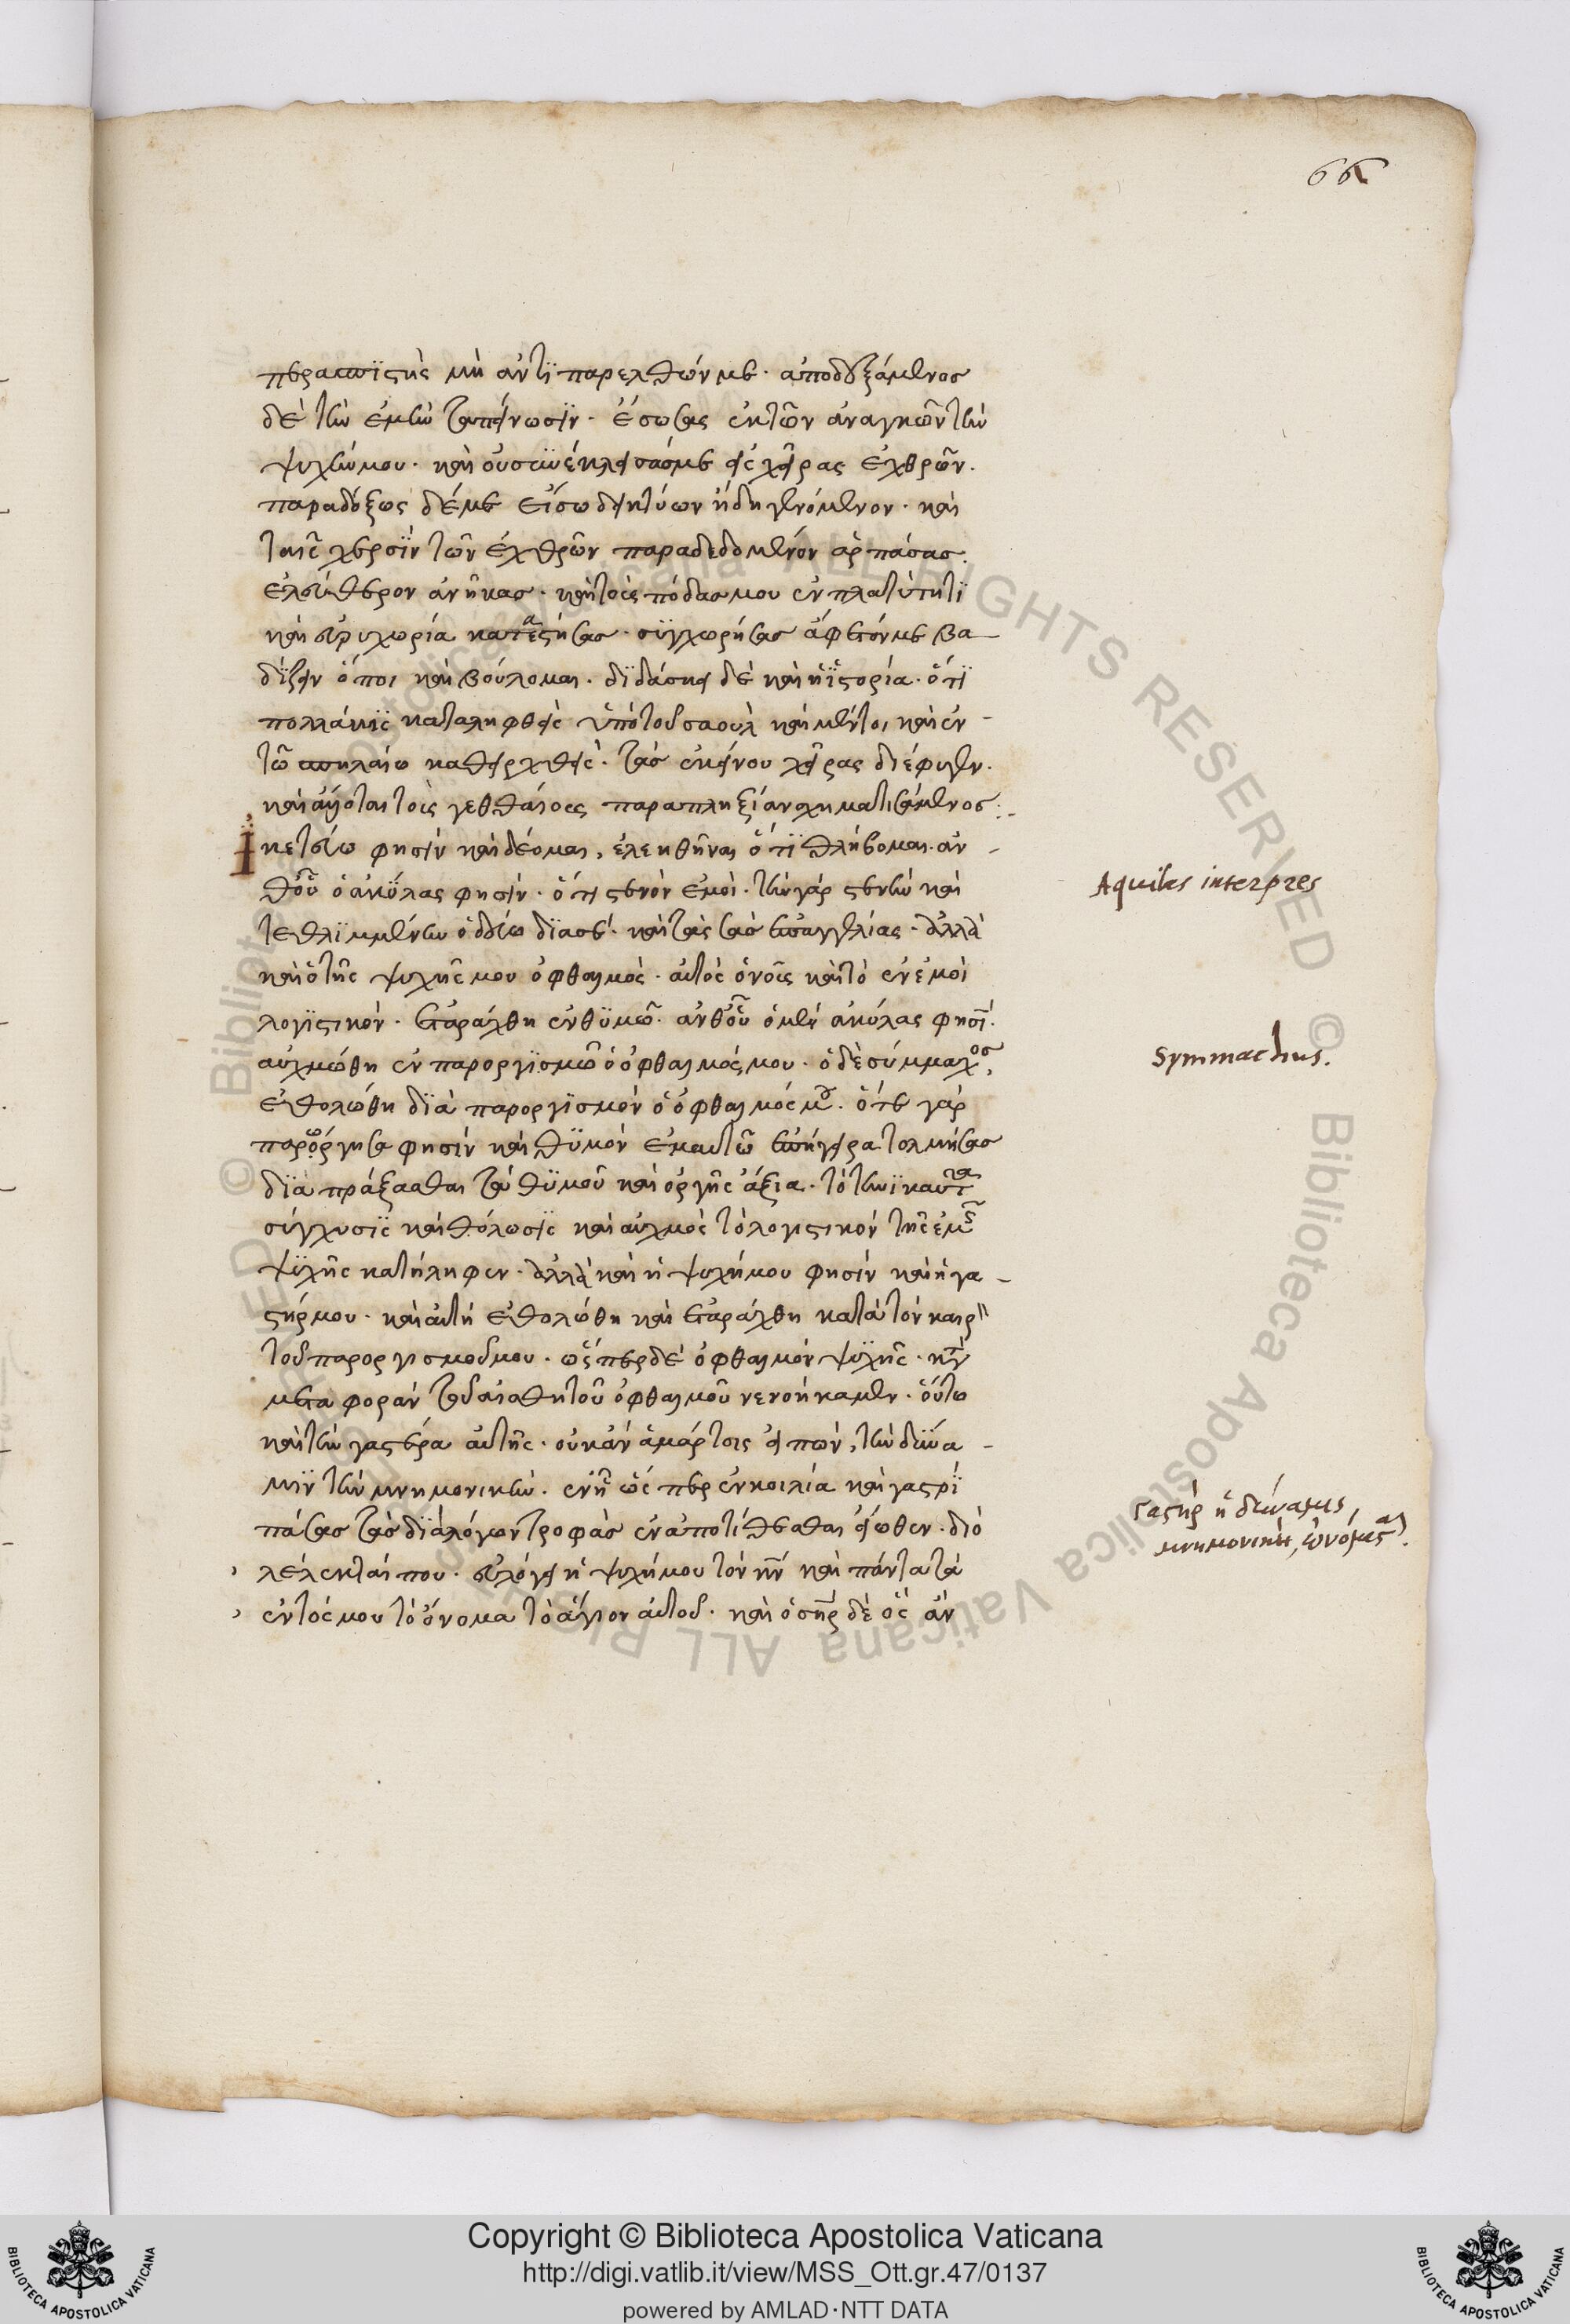 66
περασπιστὴς μὴ ἀντιπαρελθών με. ἀποδεξάμενος
δὲ τὴν ἐμὴν ταπείνωσιν. ἔσωσας ἐκ τῶν ἀναγκῶν τὴν
ψυχήν μου. καὶ οὐ συνέκλεισάς με εἰς χεῖρας ἐχθρῶν.
παραδόξως δέ με εἴσω δικτύων ἤδη γενόμενον. καὶ
ταῖς χερσὶν τῶν ἐχθρῶν παραδεδομένον ἁρπάσας
ἐλεύθερον ἀνῆκας. καὶ τοὺς πόδας μου ἐν πλατύτητι
καὶ εὐρυχωρία κατέστησας. συγχωρήσας ἄφετόν με βα-
δίζειν ὅποι καὶ βούλομαι. διδάσκει δὲ καὶ ἡ ἱστορία. ὅτι
πολλάκις καταληφθεὶς ὑπὸ τοῦ σαοὺλ καὶ μέντοι καὶ ἐν-
τῶ σπηλαίω καθειρχθείς. τὰς ἐκείνου χεῖρας διέφυγεν.
καὶ αὖ ὅταν τοῖς γεθθαίοις παραπληξίαν σχηματισάμενος:-
Ἱκετεύω φησὶν καὶ δέομαι, ἐλεηθῆναι ὅτι θλίβομαι. ἀν-
θοῦ ὁ ἀκύλας φησίν. ὅτι στενὸν ἐμοί. τὴν γὰρ στενὴν καὶ
τεθλιμμένην ὁδεύω διὰ σέ. καὶ τὰς σὰς ἐπαγγελίας. ἀλλὰ
καὶ ὁ τῆς ψυχῆς μου ὀφθαλμός. αὐτὸς ὁ νοῦς καὶ τὸ ἐν ἐμοὶ
λογιστικόν. ἐταράχθη ἐν θυμῶ. ἀνθοῦ ὁ μὲν ἀκύλας φησί.
αὐχμώθη ἐν παροργισμῶ ὁ ὀφθαλμός μου. ὁ δὲ σύμμαχος,
ἐθολώθη διὰ παροργισμὸν ὁ ὀφθαλμός μου. ὅτε γάρ
παρώργησα φησὶν καὶ θυμὸν ἐμαυτῶ ἐπήγειρα τολμήσας
διαπράξασθαι τὰ θυμοῦ καὶ ὀργῆς ἄξια. τοτηνικαῦτα
σύγχυσις καὶ θόλωσις καὶ αὐχμὸς τὸ λογιστικὸν τῆς ἐμῆς
ψυχῆς κατήληφεν. ἀλλὰ καὶ ἡ ψυχή μου φησὶν καὶ ἡ γα-
στήρ μου. καὶ αὐτὴ ἐθολώθη καὶ ἐταράχθη κατὰ τὸν καιρ
τοῦ παροργισμοῦ μου. ὥσπερ δὲ ὀφθαλμὸν ψυχῆς. κατὰ
μεταφορὰν τοῦ αἰσθητοῦ ὀφθαλμοῦ νενοήκαμεν. οὕτω
καὶ τὴν γαστέρα αὐτῆς. οὐκ ἂν ἁμάρτοις εἰπών, τὴν δύνα-
μιν τὴν μνημονικήν. ἐν ἧ ὥσπερ ἐν κοιλία καὶ γαστρὶ
πάσας τὰς διὰ λόγων τροφὰς ἐναποτίθεσθαι εἴωθεν. διὸ
λέλεκταί που. εὐλόγει ἡ ψυχή μου τὸν κν καὶ πάντα τὰ
ἐντός μου τὸ ὄνομα τὸ ἅγιον αὐτοῦ. καὶ ὁ σηρ δὲ ὃς ἂν
Aquilas interpres
Symmachus.
Γαστὴρ ἡ δύναμις
μνημονικὴ, ὠνόμασται.
Copyright © Biblioteca Apostolica Vaticana
http://digi.vatlib.it/view/MSS_Ott.gr.47/0137
powered by AMLAD·NTT DATA
BIBLIOTECA APOSTOLICA VATICANA
BIBLIOTECA APOSTOLICA VATICANA